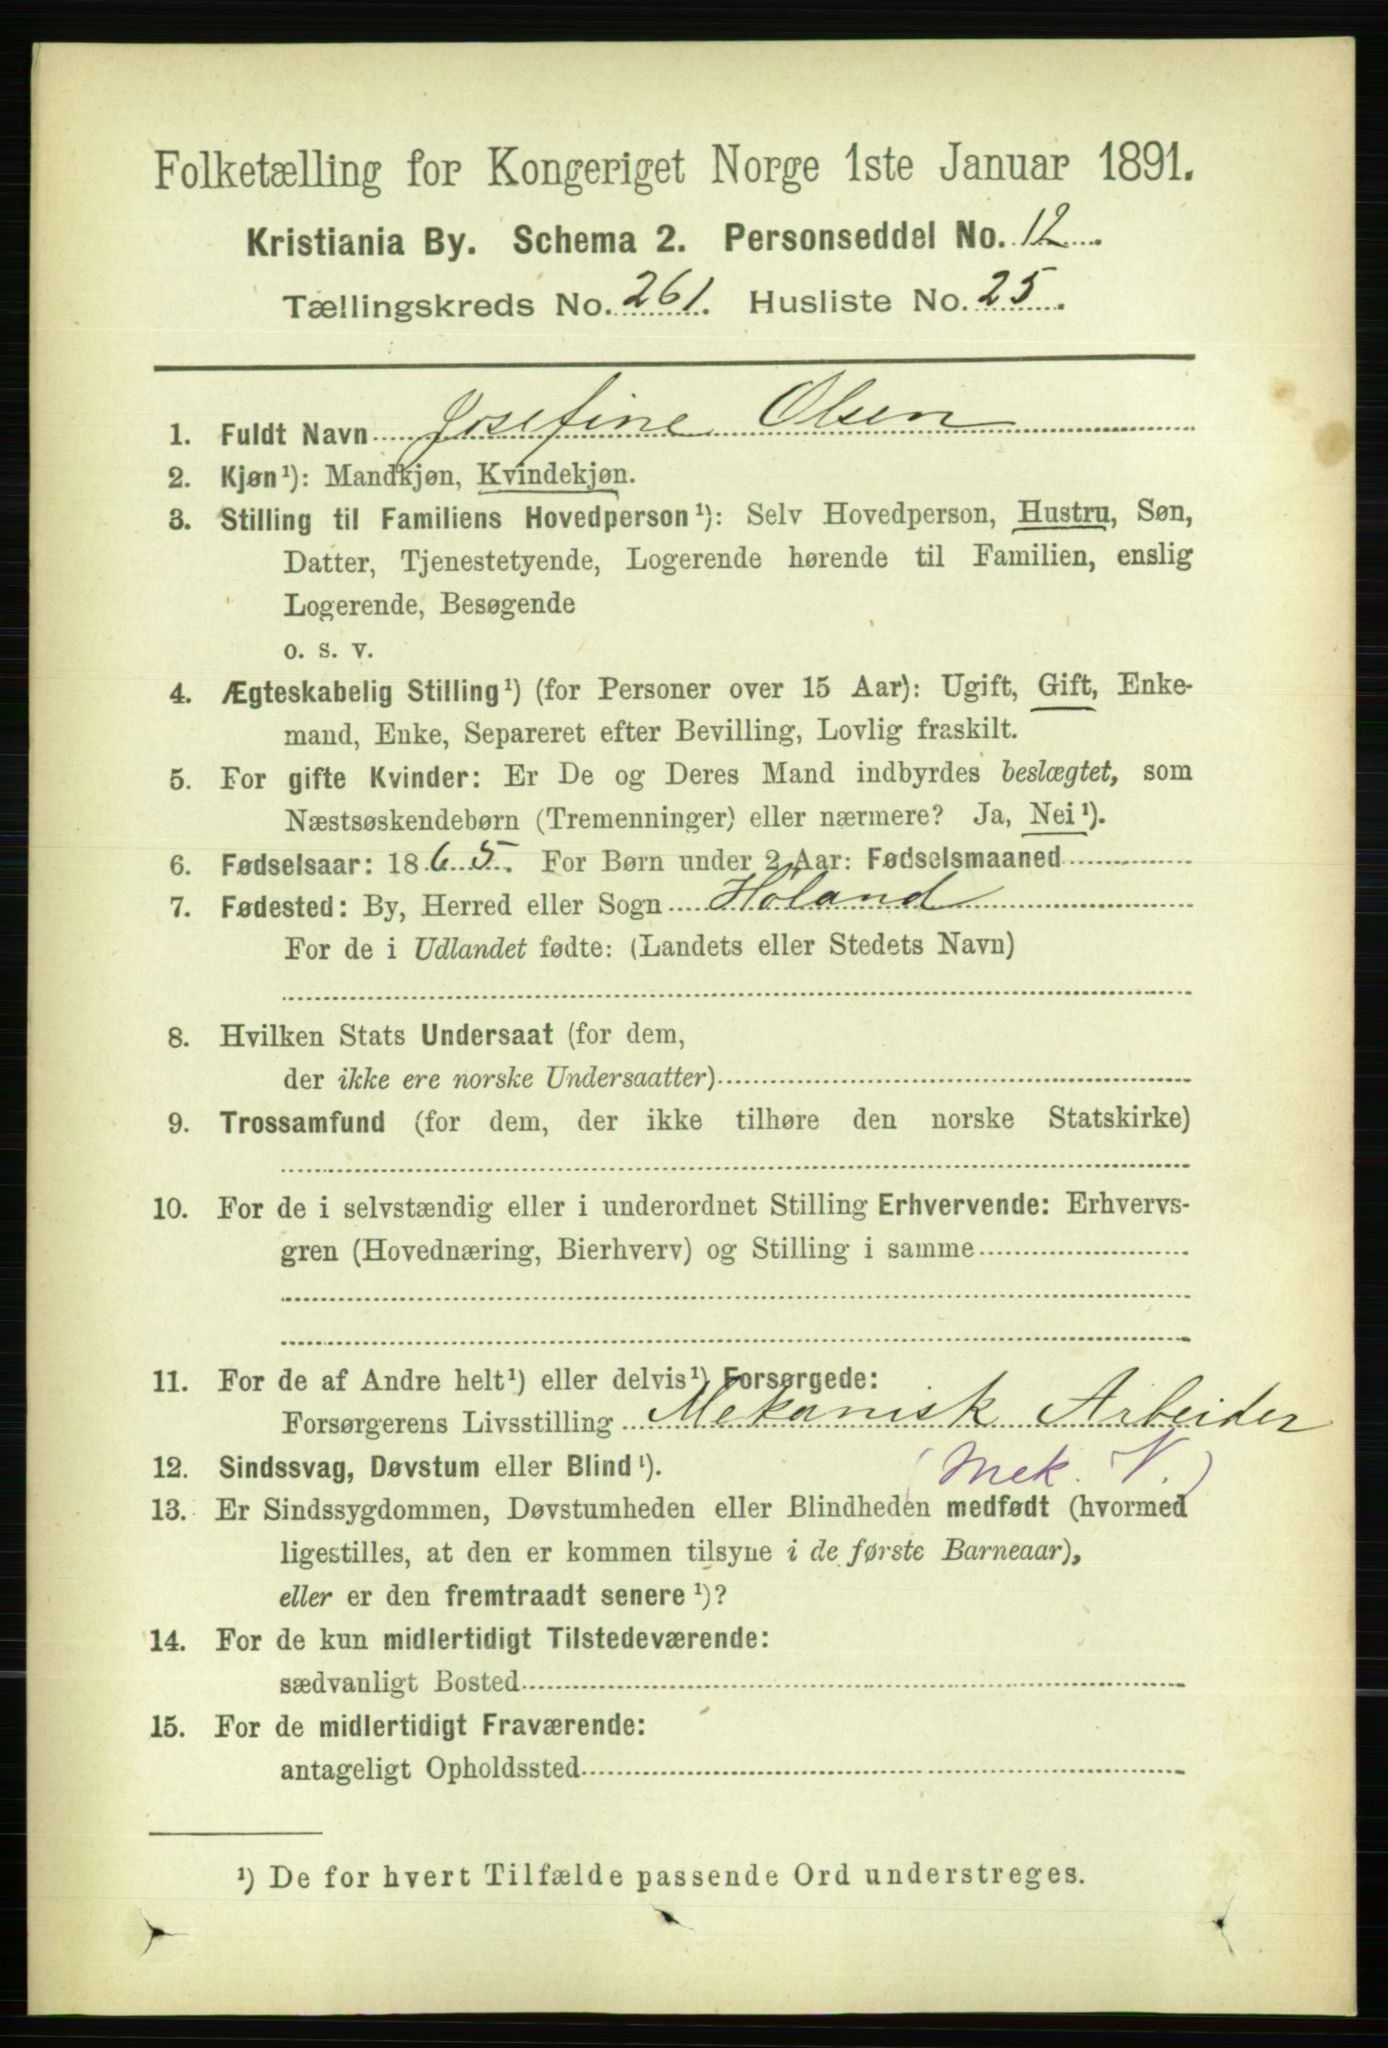 Folketælling for Kongeriget Norge 1ste Januar 1891.
Kristiania By. Schema 2. Personseddel No. 12
Tællingskreds No. 261. Husliste No. 25.
1. Fuldt Navn Josefine Olsen
2. Kjøn¹): Mandkjøn, Kvindekjøn.
3. Stilling til Familiens Hovedperson¹): Selv Hovedperson, Hustru, Søn,
Datter, Tjenestetyende, Logerende hørende til Familien, enslig
Logerende, Besøgende
o. s. v.
4. Ægteskabelig Stilling¹) (for Personer over 15 Aar): Ugift, Gift, Enke-
mand, Enke, Separeret efter Bevilling, Lovlig fraskilt.
5. For gifte Kvinder: Er De og Deres Mand indbyrdes beslægtet, som
Næstsøskendebørn (Tremenninger) eller nærmere? Ja, Nei¹).
6. Fødselsaar: 1865. For Børn under 2 Aar: Fødselsmaaned
7. Fødested: By, Herred eller Sogn Höland
For de i Udlandet fødte: (Landets eller Stedets Navn)
8. Hvilken Stats Undersaat (for dem,
der ikke ere norske Undersaatter)
9. Trossamfund (for dem, der ikke tilhøre den norske Statskirke)
10. For de i selvstændig eller i underordnet Stilling Erhvervende: Erhvervs-
gren (Hovednæring, Bierhverv) og Stilling i samme
11. For de af Andre helt¹) eller delvis¹) Forsørgede:
Forsørgerens Livsstilling Mekanisk Arbeider
12. Sindssvag, Døvstum eller Blind¹). (Mek. V.)
13. Er Sindssygdommen, Døvstumheden eller Blindheden medfødt (hvormed
ligestilles, at den er kommen tilsyne i de første Barneaar),
eller er den fremtraadt senere¹)?
14. For de kun midlertidigt Tilstedeværende:
sædvanligt Bosted
15. For de midlertidigt Fraværende:
antageligt Opholdssted
¹) De for hvert Tilfælde passende Ord understreges.